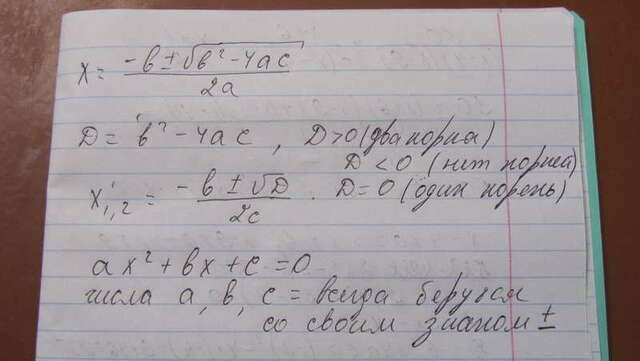 x = (-в ± √(в² - 4ac)) / 2a
D = в² - 4ac, D>0 (два корня)
D < 0 (нет корней)
x₁,₂ = (-в ± √D) / 2c . D=0 (один корень)
ax² + вx + c = 0
числа a, в, c = всегда берутся
со своим знаком ±